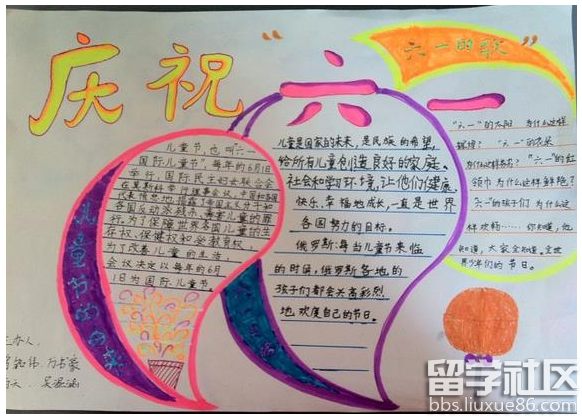 庆祝“六一”
六一的歌
儿童节的由来
儿童节,也叫“六一
国际儿童节”,每年的6月1日
举行,国际民主妇女联合会
在莫斯科举行理事会议,中国和各国
各国反动派残杀、毒害儿童的罪
行。为了保障世界各国儿童的生
存权、保健权和受教育权,
为了改善儿童的生活,
会议决定以每年的6月
1日为国际儿童节。
儿童是国家的未来,是民族的希望,
给所有儿童创造良好的家庭、
社会和学习环境,让他们健康、
快乐、幸福地成长,一直是世界
各国努力的目标。
俄罗斯:每当儿童节来临
的时侯,俄罗斯各地的
孩子们都会兴高彩烈
地欢度自己的节日。
“六一”的太阳 为什么这样
辉煌? “六一”的花朵
为什么这样 “六一”的红
领巾为什么这样鲜艳?
“六一”的孩子们 为什么这
样欢畅……你知道,他
知道,大家全知道。全世
界少年们的节日。
主办人:
留学社区
bbs.liuxue86.com